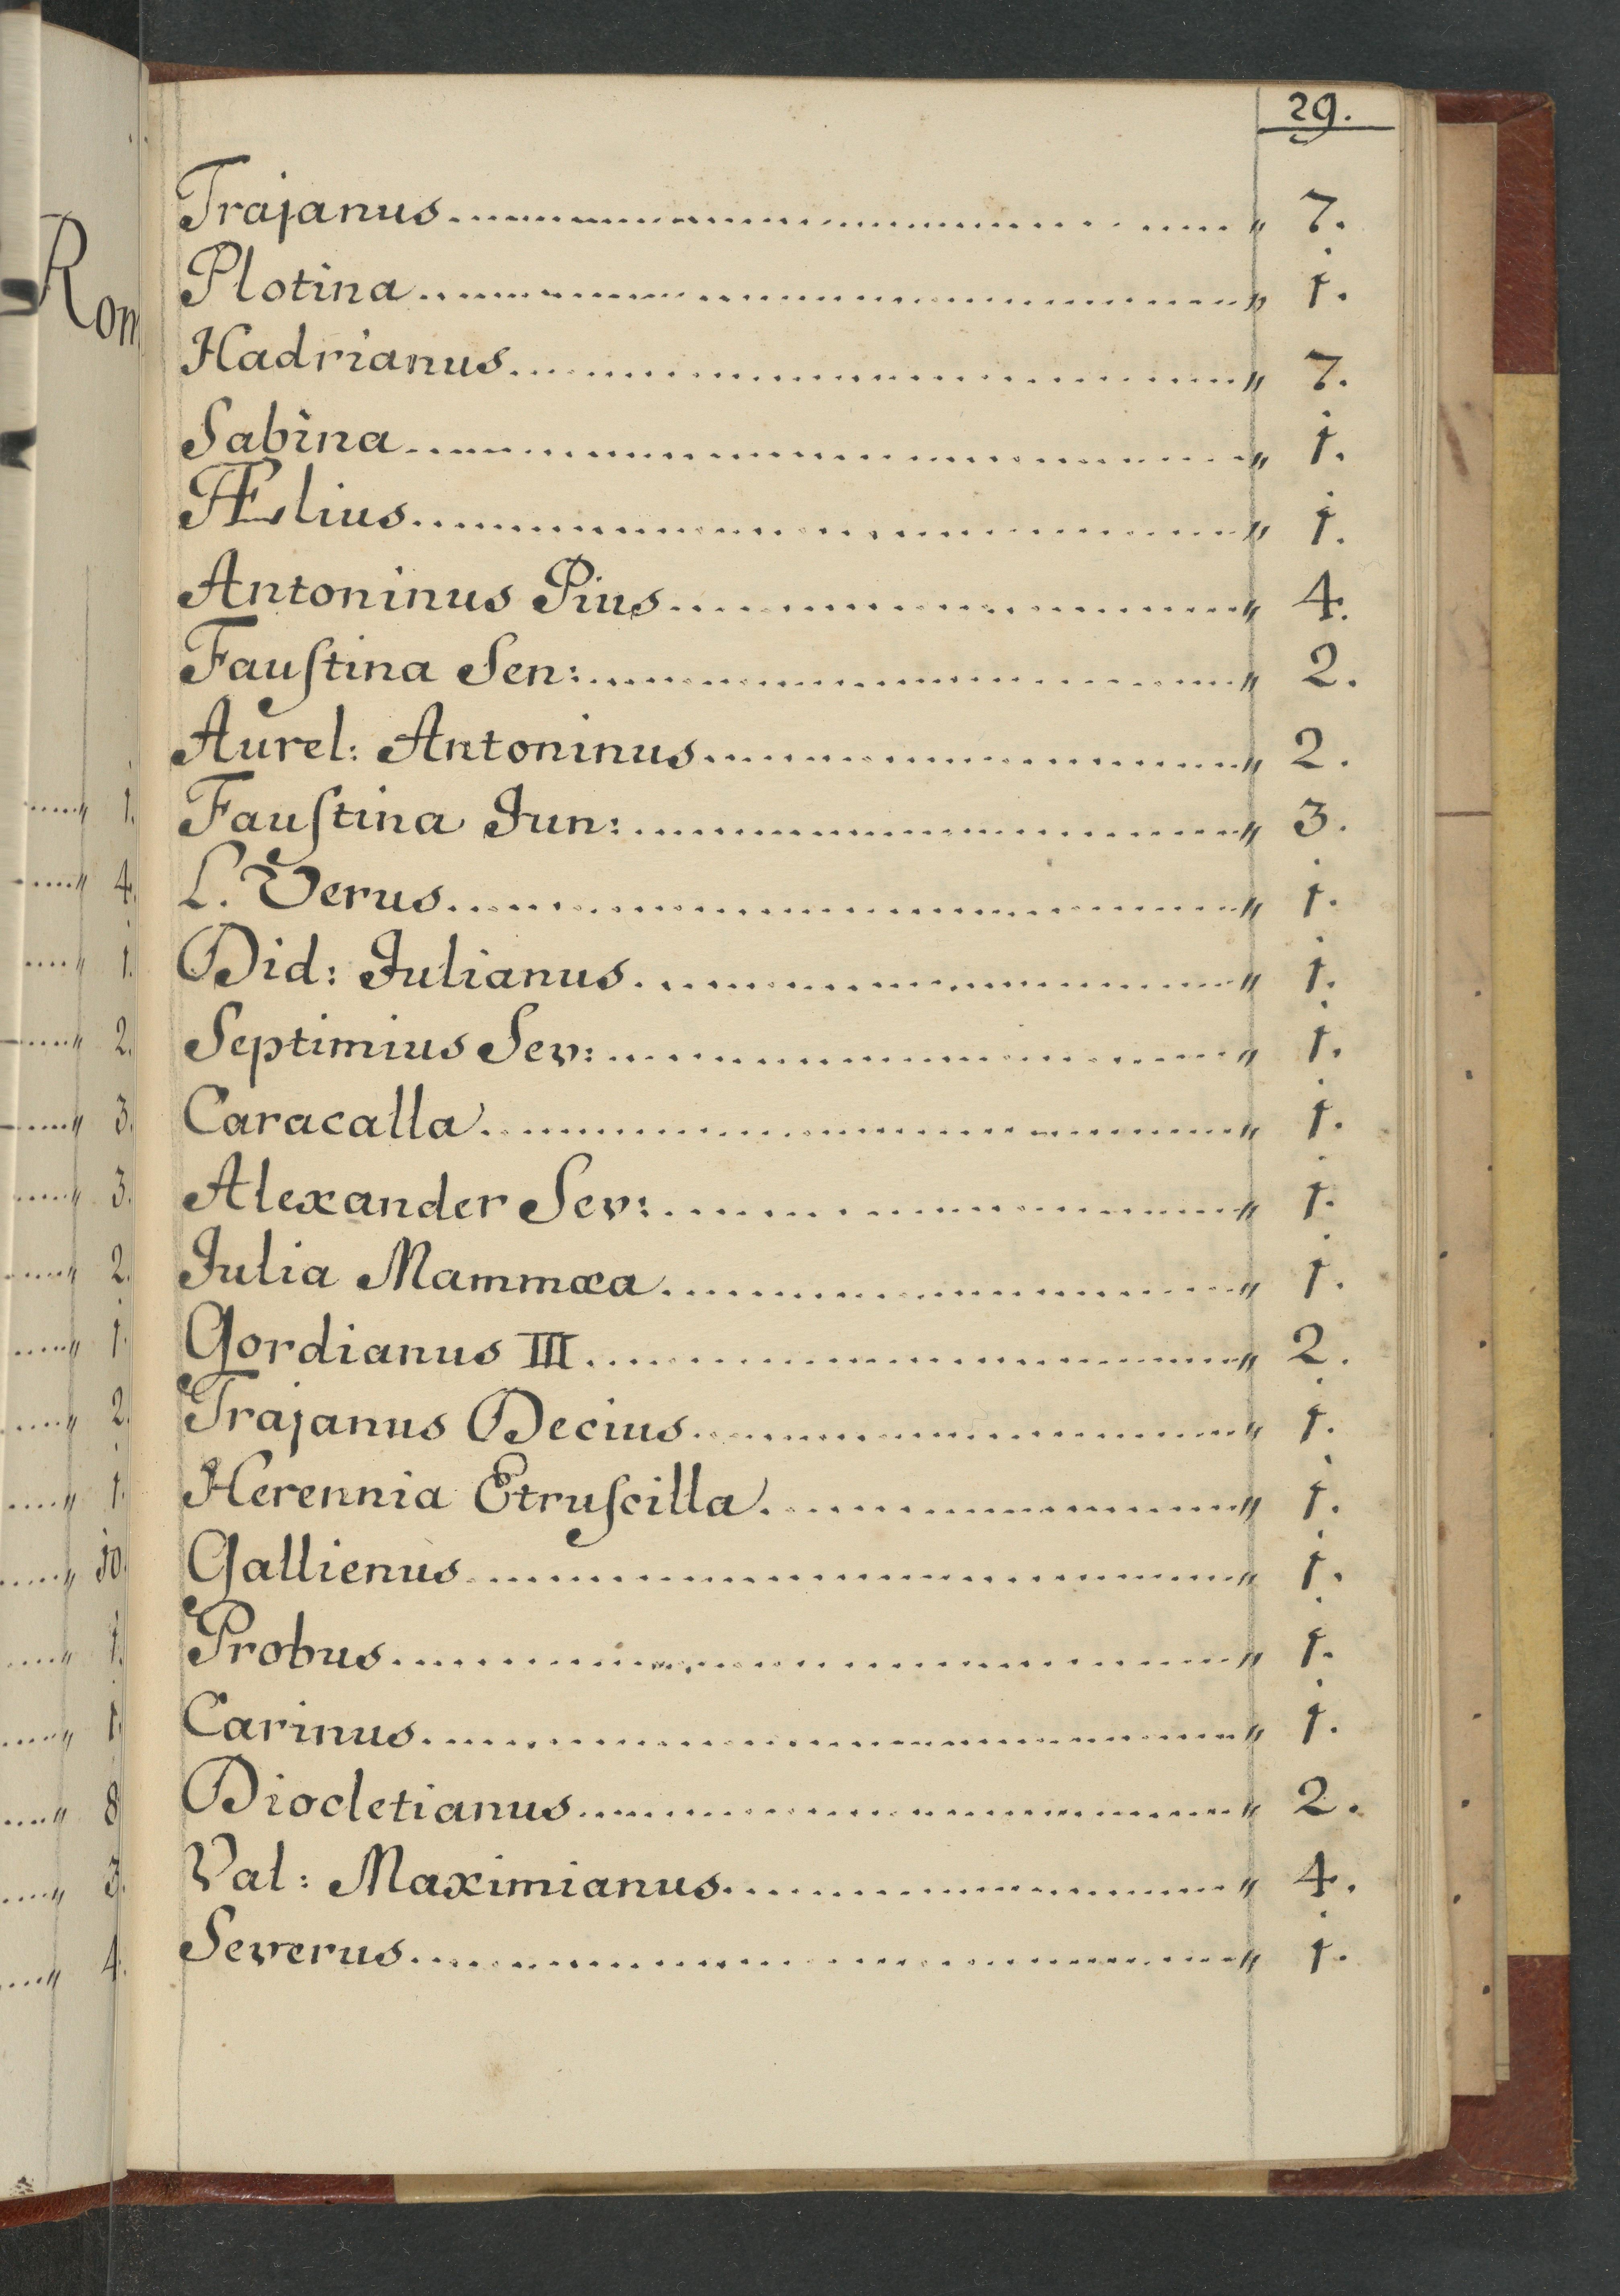 Rom
1.
4.
1.
2.
3.
3.
2.
1.
2.
1.
10.
1.
1.
8
3.
4.
29.
Trajanus................................ " 7.
Plotina................................ " 1.
Hadrianus................................ " 7.
Sabina................................ " 1.
Ælius................................ " 1.
Antoninus Pius................................ " 4.
Fauſtina Sen:................................ " 2.
Aurel: Antoninus................................ " 2.
Fauſtina Jun:................................ " 3.
L. Verus................................ " 1.
Did: Julianus................................ " 1.
Septimius Sev:................................ " 1.
Caracalla................................ " 1.
Alexander Sev:................................ " 1.
Julia Mammæa................................ " 1.
Gordianus III................................ " 2.
Trajanus Decius................................ " 1.
Herennia Etruſcilla................................ " 1.
Gallienus................................ " 1.
Probus................................ " 1.
Carinus................................ " 1.
Diocletianus................................ " 2.
Val: Maximianus................................ " 4.
Severus................................ " 1.